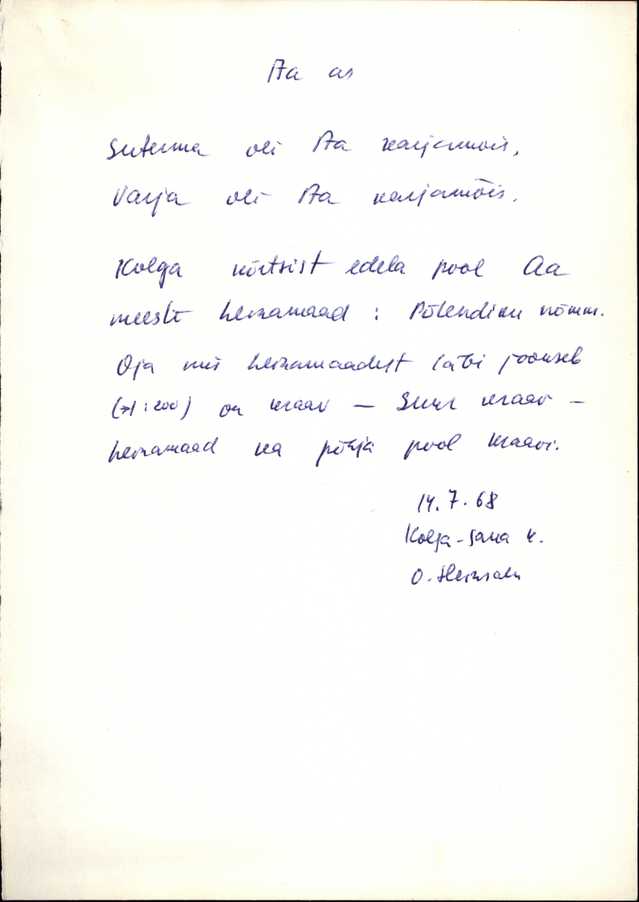 Aa as
Suterma oli Aa karjamois,
Varja oli Aa karjamõis.
Kolga kõrtsist edela pool Aa
meeste heinamaad : Põlendiku nõmm.
Oja mis heinamaadest läbi jookseb
(→1:200) on kraav — Suur kraav –
heinamaad ka põhja pool kraavi.
14.7.68
Kolga-Jaua k.
O. Heinsalu